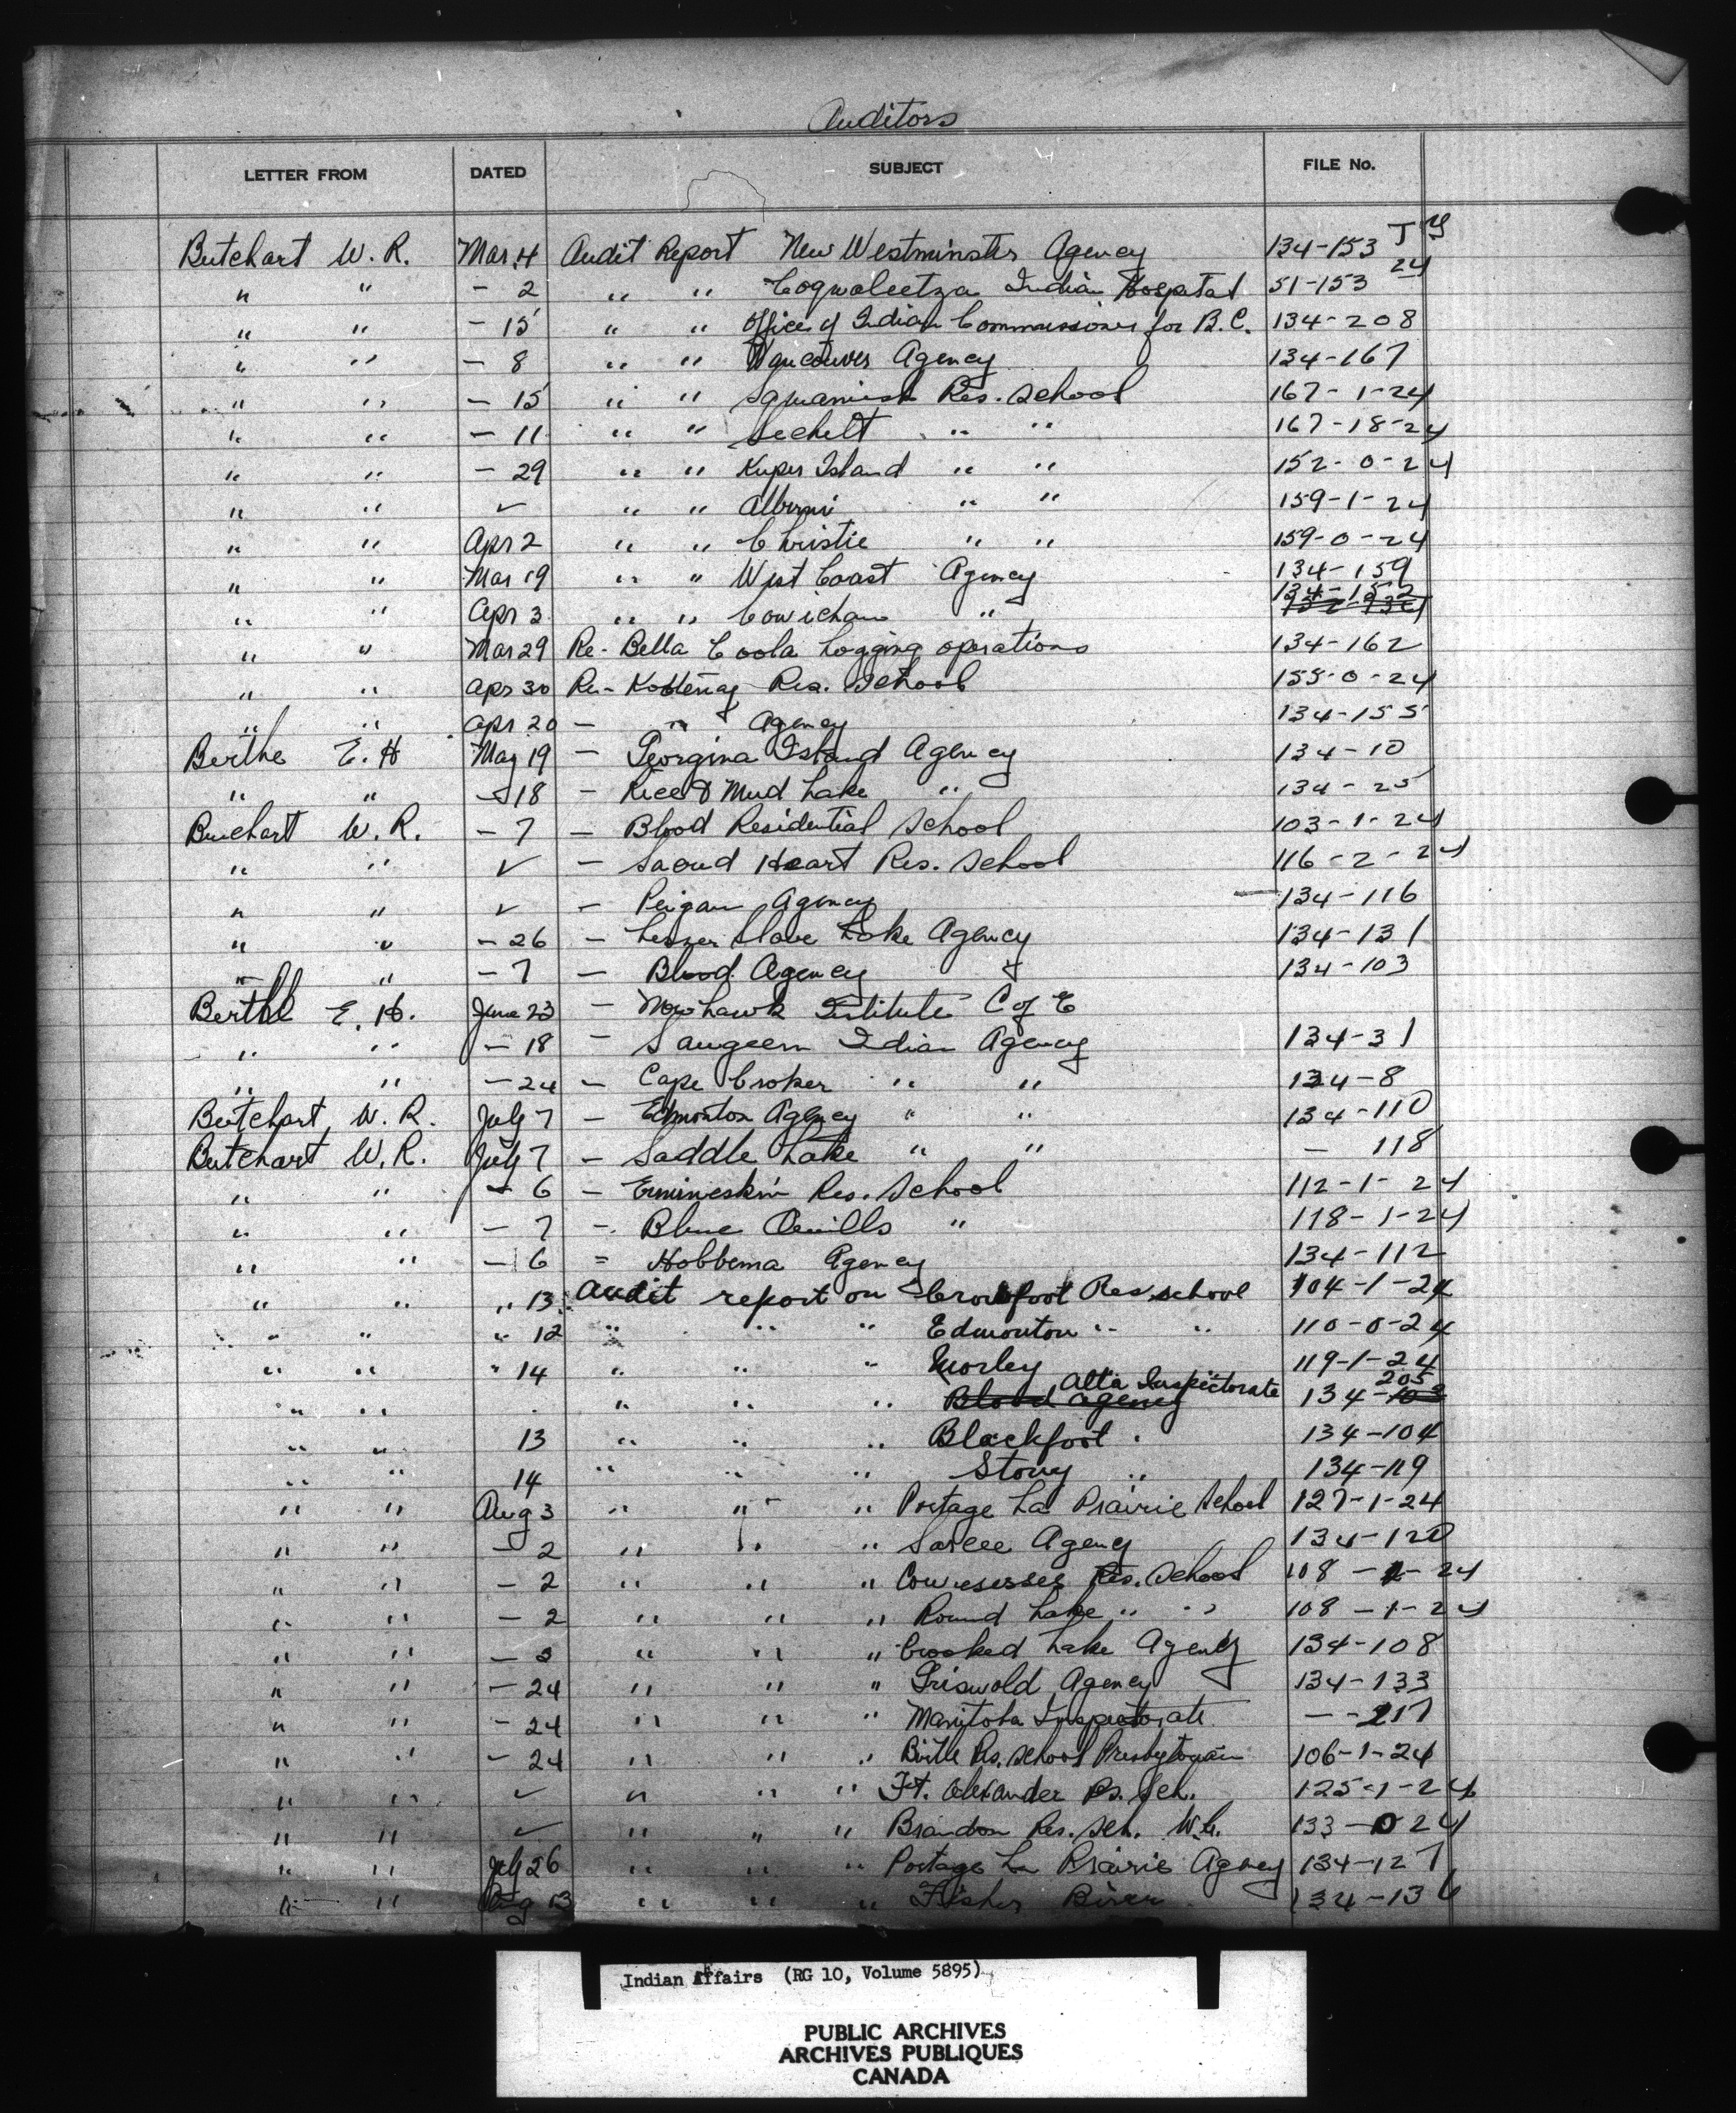 Auditors
LETTER FROM DATED SUBJECT FILE No.
Butchart W. R. Mar 4 Audit Report New Westminster Agency 134-153
" " - 2 " " Coqualeetza Indian Hospital 51-153 24
" " - 15 " " Office of Indian Commissioner for B. C. 134-208
" " - 8 " " Vancouver Agency 134-167
" " - 15 " " Squamish Res. School 167-1-24
" " - 11 " " Sechelt " " 167-18-24
" " - 29 " " Kuper Island " " 152-0-24
" " ✓ " " Alberni " " 159-1-24
" " Apr 2 " " Christie " " 159-0-24
" " Mar 19 " " West Coast Agency 134-159
" " Apr 3 " " Cowichan " 134-152
" " Mar 29 Re- Bella Coola Logging operations 134-162
" " Apr 30 Re- Kootenay Res. School 155-0-24
" " Apr 20 - " Agency 134-155
Berthe E. H May 19 - Georgina Island Agency 134-10
" " - 18 - Rice & Mud Lake " 134-25
Buchart W. R. - 7 - Blood Residential School 103-1-24
" " ✓ - Sacred Heart Res. School 116-2-24
" " ✓ - Peigan Agency 134-116
" " - 26 - Lesser Slave Lake Agency 134-131
" " - 7 - Blood Agency 134-103
Berthe E. H. June 23 - Mohawk Institute C of E
" " - 18 - Saugeen Indian Agency 134-31
" " - 24 - Cape Croker " " 134-8
Butchart, W. R. July 7 - Edmonton Agency " " 134-110
Butchart W. R. July 7 - Saddle Lake " " - 118
" " - 6 - Ermineskin Res. School 112-1-24
" " - 7 - Blue Quills " 118-1-24
" " - 6 = Hobbema Agency 134-112
" " " 13 Audit report on Crowfoot Res. School 104-1-24
" " " 12 " " " Edmonton " " 110-0-24
" " " 14 " " " Morley 119-1-24
" " " " " Blood Agency Alta Inspectorate 134-103 205
" " 13 " " " Blackfoot " 134-104
" " 14 " " " Stony " 134-119
" " Aug 3 " " " Portage La Prairie School 127-1-24
" " - 2 " " " Sarcee Agency 134-120
" " - 2 " " " Cowesesses Res. School 108 - 2-24
" " - 2 " " " Round Lake " " 108 -1-24
" " - 2 " " " Crooked Lake Agency 134-108
" " - 24 " " " Griswold Agency 134-133
" " - 24 " " " Manitoba Inspectorate - -217
" " - 24 " " " Birtle Res. School Presbyterian 106-1-24
" " ✓ " " " Ft. Alexander Rs. Sch. 125-1-24
" " ✓ " " " Brandon Res. Sch. 133-0 24
" " July 26 " " " Portage La Prairie Agency 134-127
" " Aug 13 " " " Fisher River 134-136
Indian Affairs (RG 10, Volume 5895)
PUBLIC ARCHIVES
ARCHIVES PUBLIQUES
CANADA